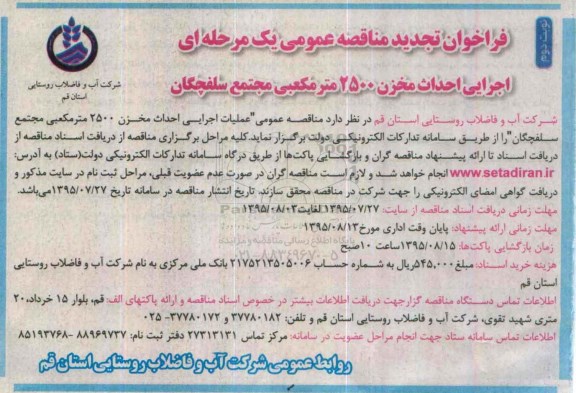 نوبت دوم
فراخوان تجدید مناقصه عمومی یک مرحله ای
اجرایی احداث مخزن ۲۵۰۰ متر مکعبی مجتمع سلفچگان
شرکت آب و فاضلاب روستایی
استان قم
شرکت آب و فاضلاب روستایی استان قم در نظر دارد مناقصه عمومی "عملیات اجرایی احداث مخزن ۲۵۰۰ مترمکعبی مجتمع
سلفچگان" را از طریق سامانه تدارکات الکترونیکی دولت برگزار نماید. کلیه مراحل برگزاری مناقصه از دریافت اسناد مناقصه از
دریافت اسناد تا ارائه پیشنهاد مناقصه گران و بازگشایی پاکت‌ها از طریق درگاه سامانه تدارکات الکترونیکی دولت(ستاد) به آدرس:
www.setadiran.ir انجام خواهد شد و لازم است مناقصه گران در صورت عدم عضویت قبلی، مراحل ثبت نام در سایت مذکور و
دریافت گواهی امضای الکترونیکی را جهت شرکت در مناقصه محقق سازند. تاریخ انتشار مناقصه در سامانه تاریخ ۱۳۹۵/۰۷/۲۷ می‌باشد.
مهلت زمانی دریافت اسناد مناقصه از سایت: ۱۳۹۵/۰۷/۲۷ لغایت ۱۳۹۵/۰۸/۰۲
مهلت زمانی ارائه پیشنهاد: پایان وقت اداری مورخ ۱۳۹۵/۰۸/۱۳
زمان بازگشایی پاکت‌ها: ۱۳۹۵/۰۸/۱۵ ساعت ۱۰ صبح
هزینه خرید اسناد: مبلغ ۵۴۵,۰۰۰ ریال به شماره حساب ۲۱۷۵۲۱۳۵۰۵۰۰۶ بانک ملی مرکزی به نام شرکت آب و فاضلاب روستایی
استان قم
اطلاعات تماس دستگاه مناقصه گزار جهت دریافت اطلاعات بیشتر در خصوص اسناد مناقصه و ارائه پاکتهای الف: قم، بلوار ۱۵ خرداد، ۲۰
متری شهید تقوی، شرکت آب و فاضلاب روستایی استان قم و تلفن: ۳۷۷۸۰۱۸۲ و ۳۷۷۸۰۱۷۲- ۰۲۵
اطلاعات تماس سامانه ستاد جهت انجام مراحل عضویت در سامانه: مرکز تماس ۲۷۳۱۳۱۳۱ دفتر ثبت نام: ۸۸۹۶۹۷۳۷ -۸۵۱۹۳۷۶۸
روابط عمومی شرکت آب و فاضلاب روستایی استان قم